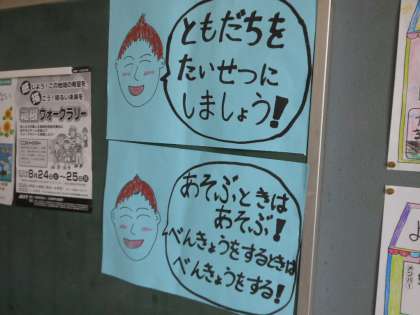 ともだちを
たいせつに
しましょう!
あそぶときは
あそぶ!
べんきょうをするときは
べんきょうをする!
ウォークラリー
8/24㊏〜25㊐